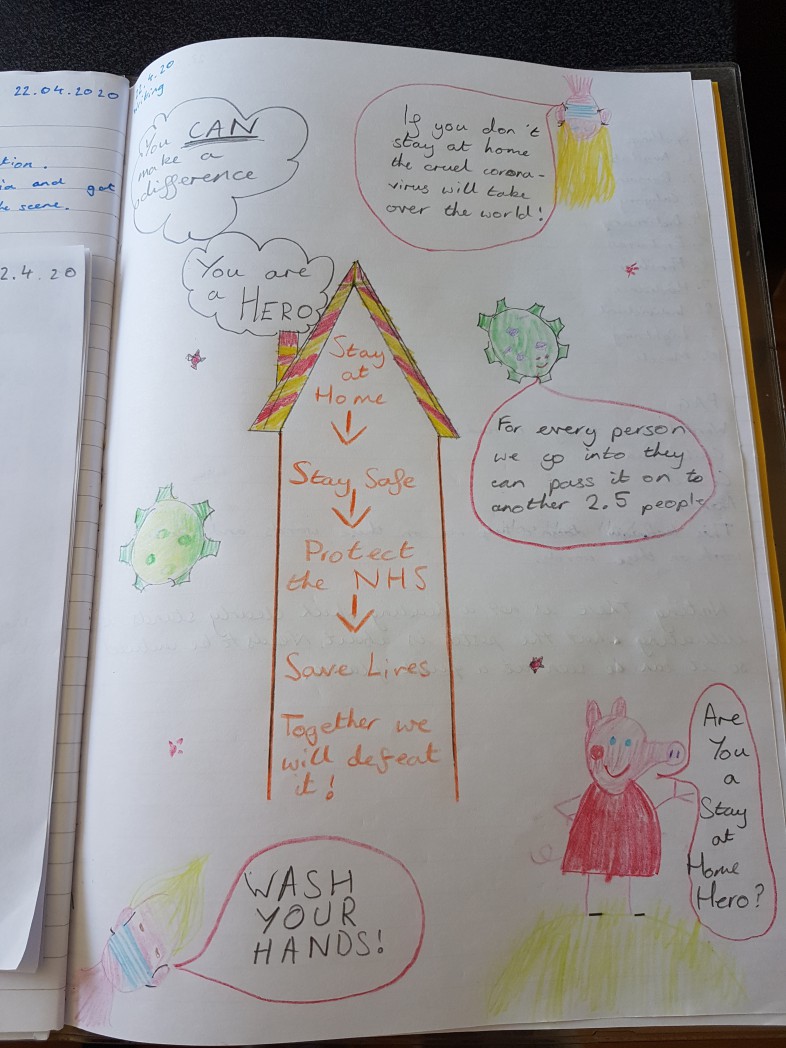 22.04.2020
tion.
and got
scene.
2.4.20
22.4.20
Writing
You CAN
make a
difference
If you don't
stay at home
the cruel corona-
virus will take
over the world!
You are
a HERO
Stay
at
Home
Stay Safe
Protect
the NHS
Save Lives
Together we
will defeat
it!
For every person
we go into they
can pass it on to
another 2.5 people
Are
You
a
Stay
at
Home
Hero?
WASH
YOUR
HANDS!